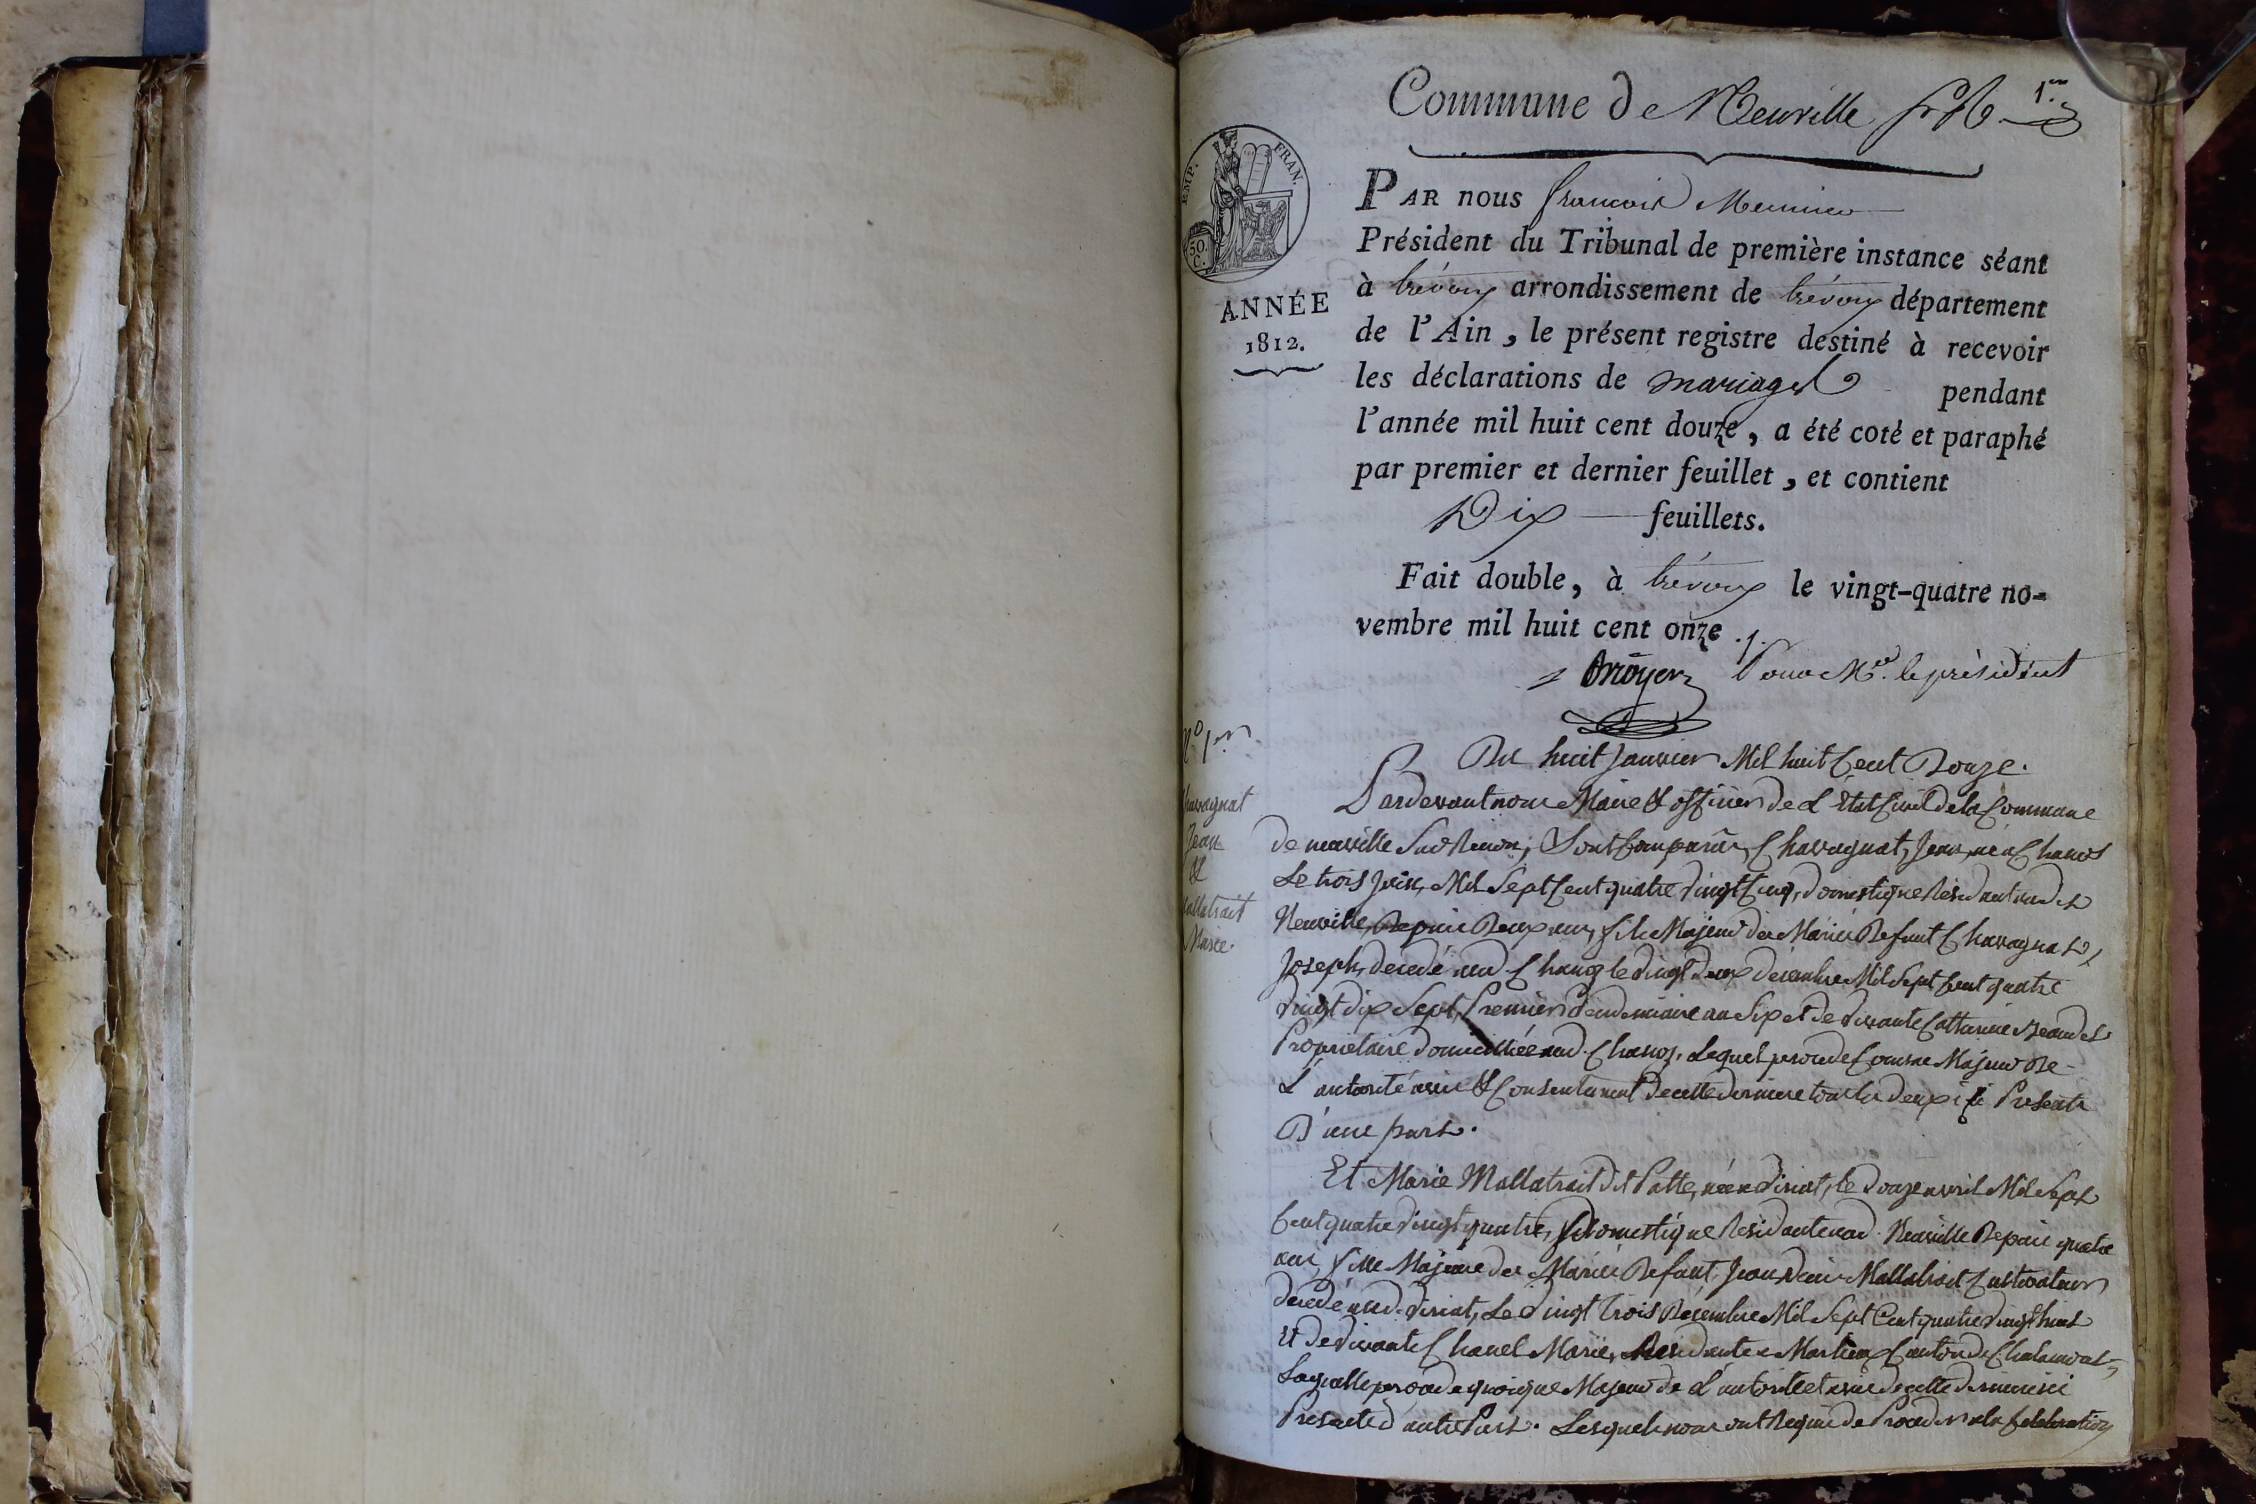 Commune de Neuville
1er
EMP. FRAN.
50. C.
ANNÉE
1812.
PAR nous françois Meunier
Président du Tribunal de première instance séant
à trévoux arrondissement de trévoux département
de l'Ain, le présent registre destiné à recevoir
les déclarations de mariages pendant
l'année mil huit cent douze, a été coté et paraphé
par premier et dernier feuillet, et contient
Dix feuillets.
Fait double, à trévoux le vingt-quatre no-
vembre mil huit cent onze ./.
Pour Mr. le président
No 1er
Chavagnat
Jean
&
Mallatrait
Marie.
Du huit Janvier Mil huit Cent Douze.
Pardevant nous Maire & officier de L'État Civil de la Commune
de neuville Sur Renon, Sont Comparûs, Chavagnat, Jean, né a Chanos
Le trois Juin, Mil Sept Cent quatre vingt Cinq, domestique Résidant aud.t
Neuville, Depuis Deux ans, fils Majeur des Mariés Defunt Chavagnat,
Joseph, decedé aud. Chanoz le vingt deux décembre Mil Sept Cent quatre
vingt dix Sept, Premier vendemiaire an Six et de vivante Catherine
Propriétaire domiciliée aud. Chanoz, Lequel procede Comme Majeur De
L'autorité avis & Consentement de cette derniere tous les deux ici Présents
D'une part.
Et Marie Mallatrait dit Patte, née a Viriat, le douze avril Mil Sept
Cent quatre vingt quatre, domestique Résidante aud. Neuville Depuis quatre
ans, fille Majeure des Mariés Defunt, Jean Denis Mallatrait Cultivateur
decedé aud. Viriat, Le vingt trois Décembre Mil Sept Cent quatre vingt huit
Et de vivante Chanel Marie, Résidante a Marlieux Canton de Chalamont,
Laquelle procede quoique Majeur de L'autorité et avis de cette derniere ici
Presente d'autre Part. Lesquels nous ont Requis de Proceder a la Celebration